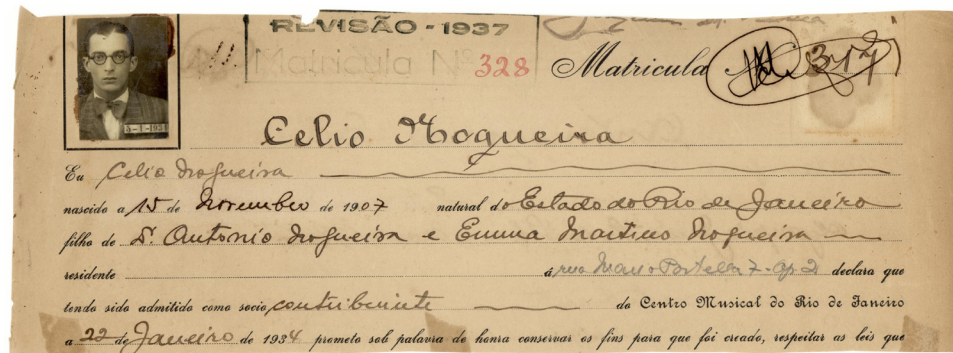 REVISÃO - 1937
Matricula Nº 328
Matricula 317
5-1-1934
Celio Nogueira
Eu Celio Nogueira
nascido a 15 de Novembro de 1907 natural do Estado do Rio de Janeiro
filho de S. Antonio Nogueira e Emma Martins Nogueira
residente á rua Mario Portella 7-Ap. 2 declara que
tendo sido admitido como socio contribuinte do Centro Musical do Rio de Janeiro
a 22 de Janeiro de 1934 prometo sob palavra de honra conservar os fins para que foi creado, respeitar as leis que